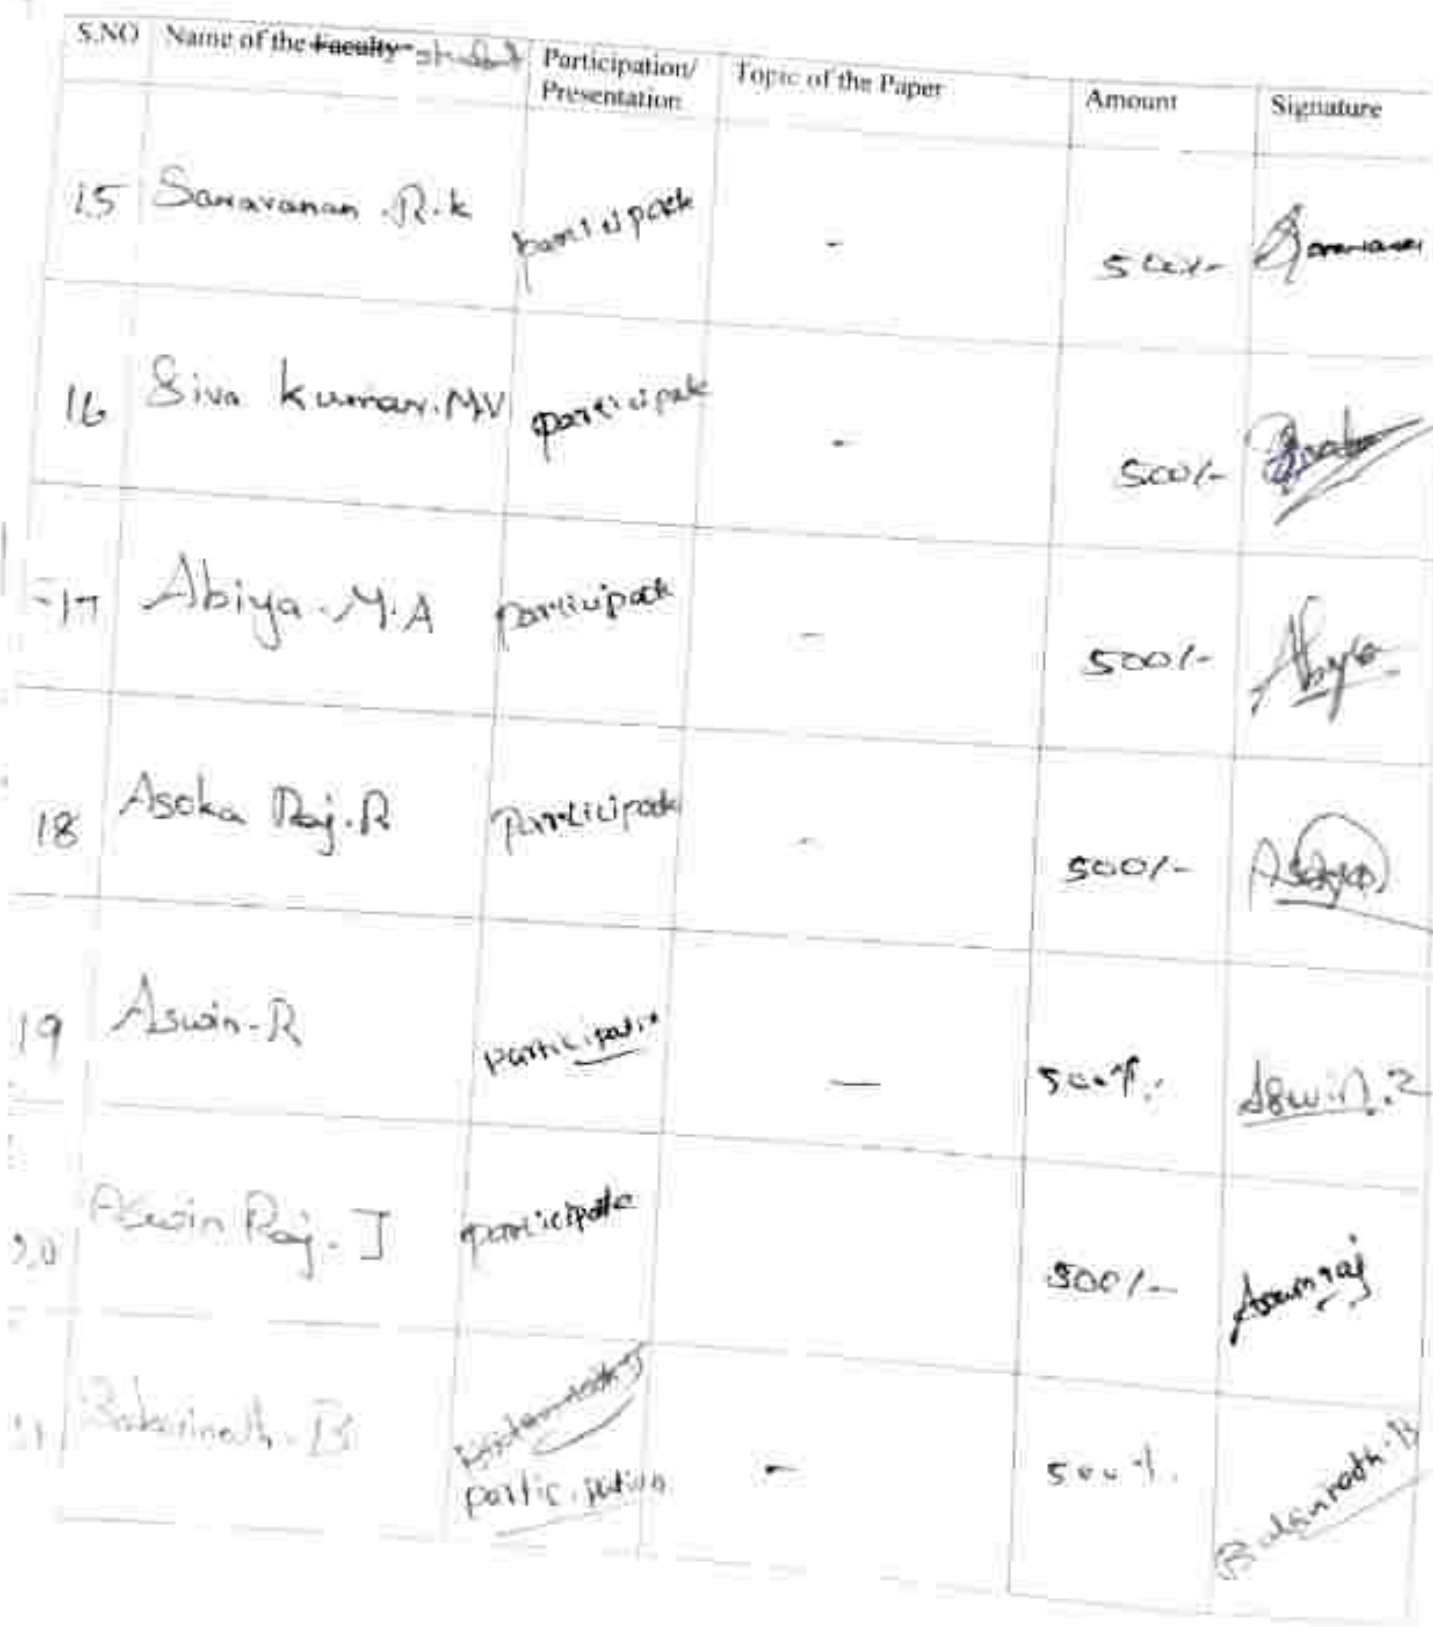 S.NO Name of the Faculty student Participation/ Presentation Topic of the Paper Amount Signature
15 Saravanan .R.k participate - 500/-
16 Siva kumar.M.V participate - 500/-
17 Abiya.M.A participate - 500/- Abiya
18 Asoka Raj.R Participate - 500/-
19 Aswin-R participation — 500/- Aswin.R
20 Aswin Raj.J participate 500/- Aswinraj
participation - 500/-